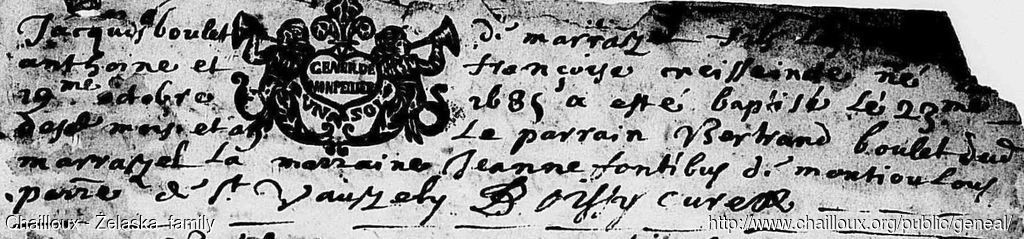 Jacques boulet de marrassel fils
anthoine et françoise creisseinde né
19me octobre 1685 a esté baptisé le 23me
desd mois et an Le parrain Bertrand boulet dud
marrassel La marraine Jeanne fontibus de montioulous
parre de St Vauzely curé
GENER DE
MONPELLIER
UN SOL
Chailloux - Żelaska family
http://www.chailloux.org/public/geneal/